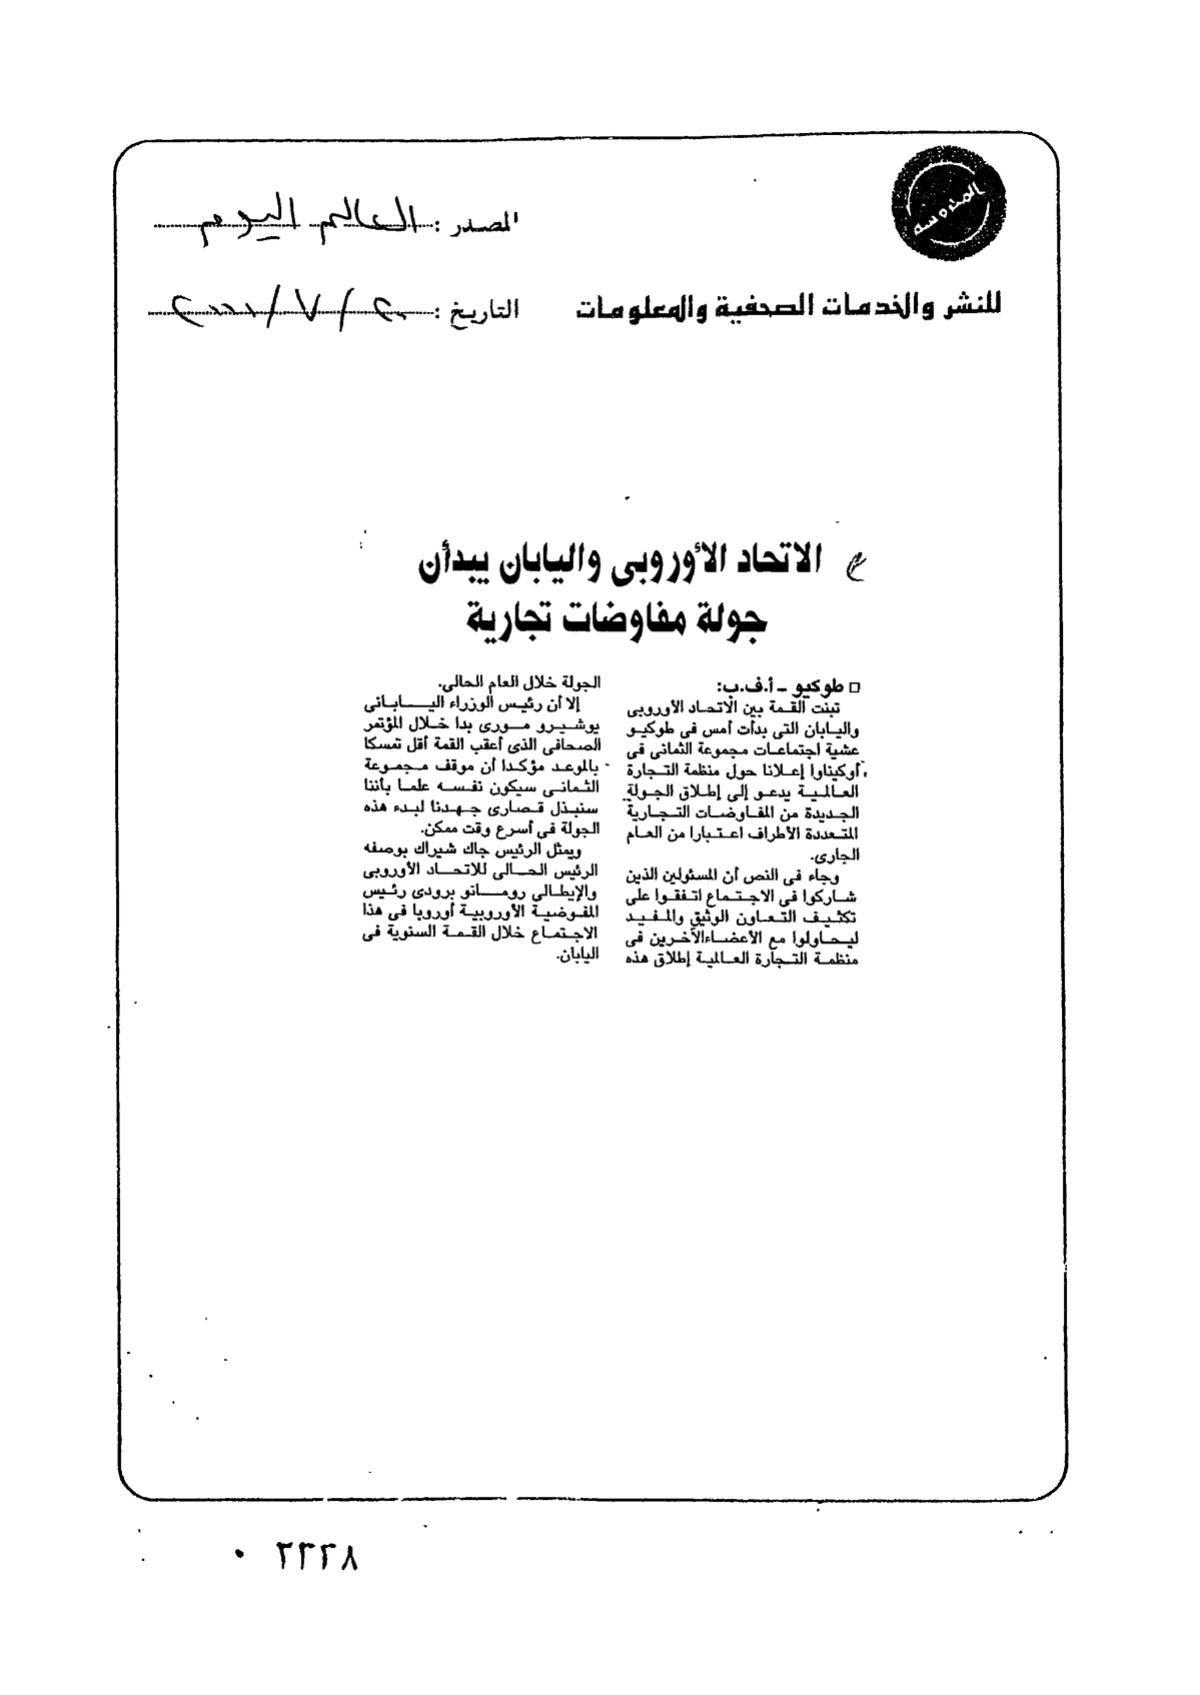 المحروسة
للنشر والخدمات الصحفية والمعلومات
المصدر : العالم اليوم
التاريخ : ٢٠ / ٧ / ٢٠٠٠
الاتحاد الأوروبى واليابان يبدأن
جولة مفاوضات تجارية
□ طوكيو – أ.ف.ب:
تبنت القمة بين الاتحاد الأوروبى
واليابان التى بدأت أمس فى طوكيو
عشية اجتماعات مجموعة الثمانى فى
أوكيناوا إعلانا حول منظمة التجارة
العالمية يدعو إلى إطلاق الجولة
الجديدة من المفاوضات التجارية
المتعددة الأطراف اعتبارا من العام
الجارى.
وجاء فى النص أن المسئولين الذين
شاركوا فى الاجتماع اتفقوا على
تكثيف التعاون الوثيق والمفيد
ليحاولوا مع الأعضاء الأخرين فى
منظمة التجارة العالمية إطلاق هذه
الجولة خلال العام الحالى.
إلا أن رئيس الوزراء اليابانى
يوشيرو مورى بدا خلال المؤتمر
الصحافى الذى أعقب القمة أقل تمسكا
بالموعد مؤكدا أن موقف مجموعة
الثمانى سيكون نفسه علما بأننا
سنبذل قصارى جهدنا لبدء هذه
الجولة فى أسرع وقت ممكن.
ويمثل الرئيس جاك شيراك بوصفه
الرئيس الحالى للاتحاد الأوروبى
والإيطالى رومانو برودى رئيس
المفوضية الأوروبية أوروبا فى هذا
الاجتماع خلال القمة السنوية فى
اليابان.
٢٣٣٨ ٠